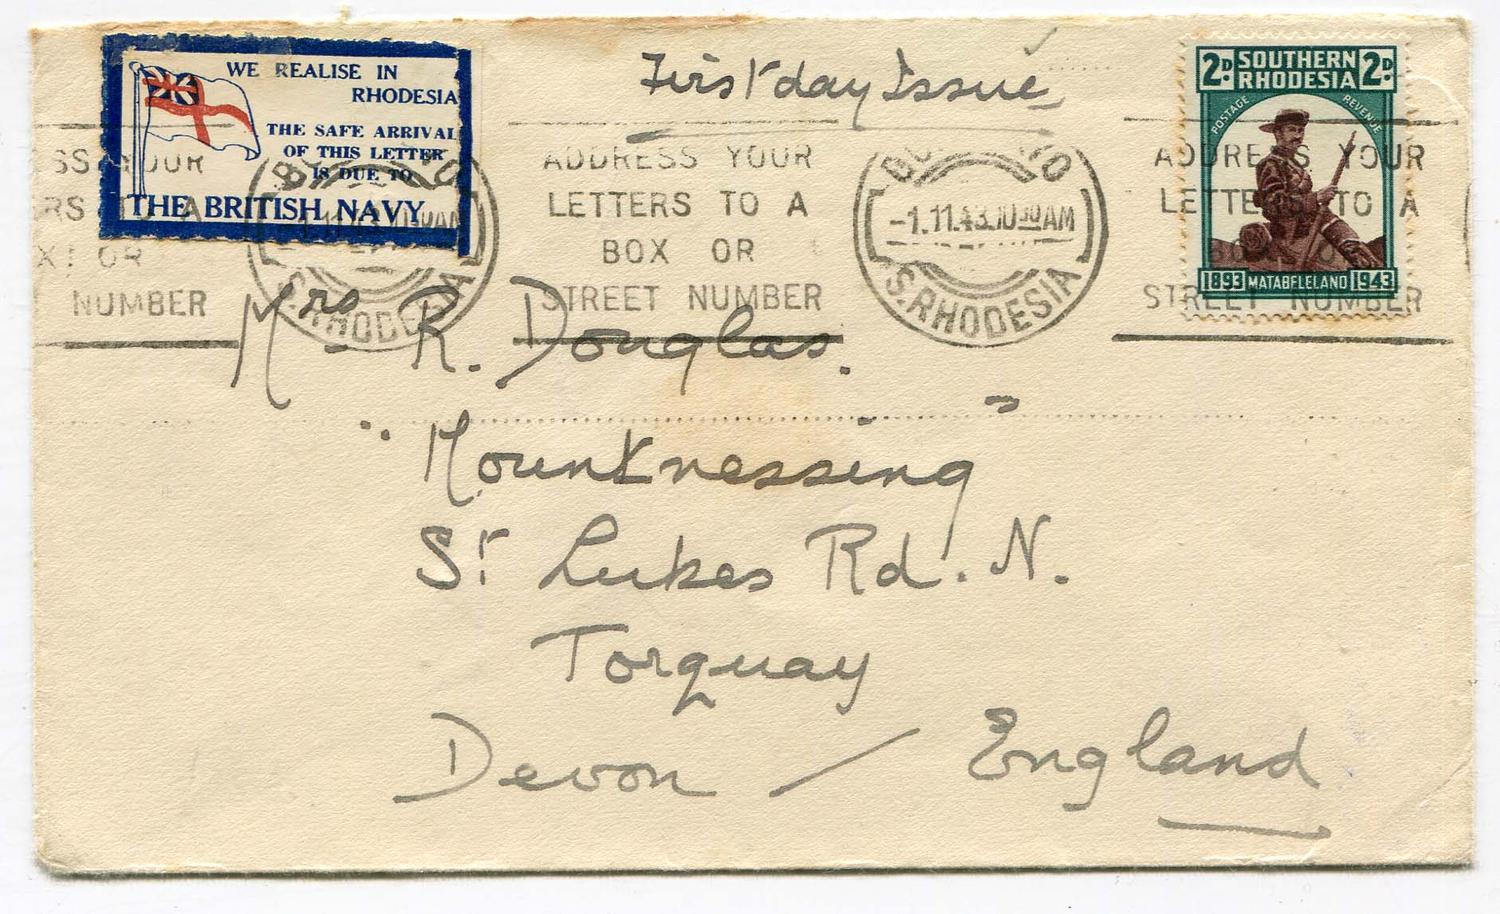 WE REALISE IN
RHODESIA
THE SAFE ARRIVAL
OF THIS LETTER
IS DUE TO
THE BRITISH NAVY
First day Issue
2D. SOUTHERN RHODESIA 2D.
POSTAGE REVENUE
1893 MATABELELAND 1943
SS YOUR
RS TO A
X OR
NUMBER
-1.11.43.10 30 AM
S. RHODESIA
ADDRESS YOUR
LETTERS TO A
BOX OR
STREET NUMBER
-1.11.43.10 30 AM
S. RHODESIA
ADDRESS YOUR
LETTERS TO A
BOX OR
STREET NUMBER
Mrs R. Douglas.
"Mountnessing"
St Lukes Rd. N.
Torquay
Devon / England